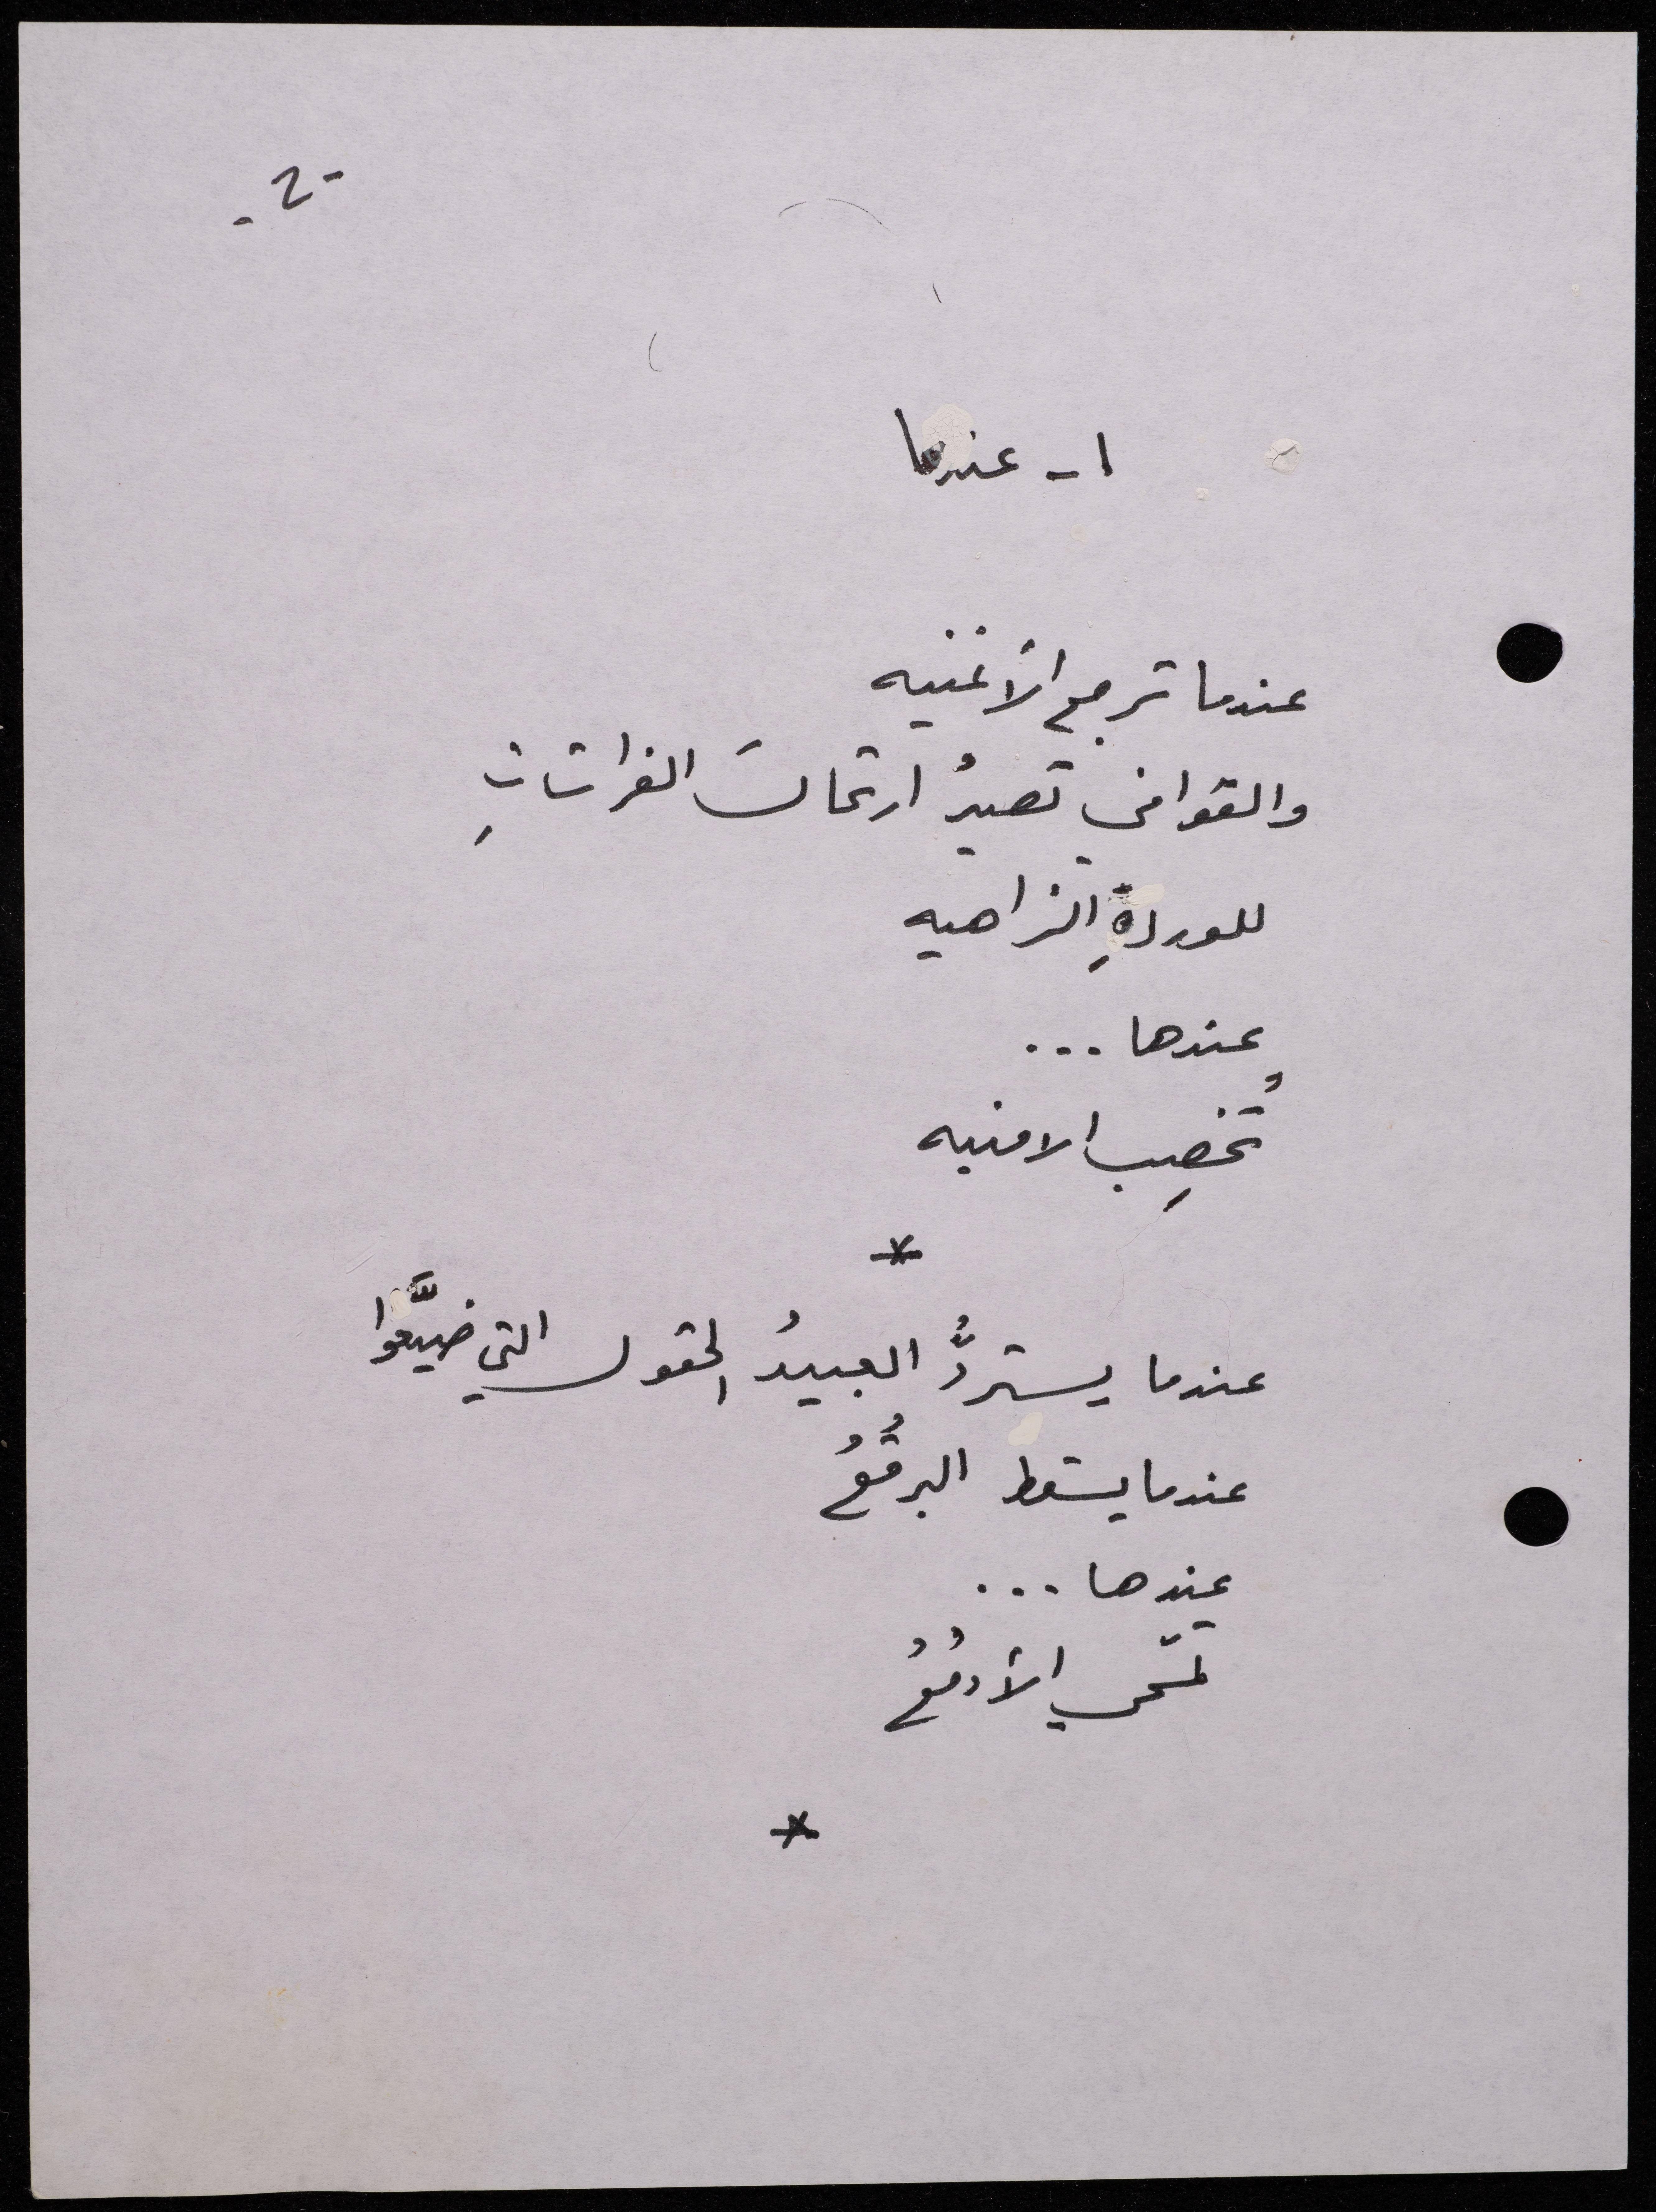 -٢-
١- عندما
عندما ترجع الأغنيه
والقوافي تصيرُ ارتحالَ الفراشاتِ
للوردةِ الزاهيه
عندها ...
تُخصِب الامنيه
*
عندما يستردُّ العبيدُ الحقول التي ضيَّعوا
عندما يسقط البرقُعُ
عندها ...
تمّحي الأدمُعُ
*